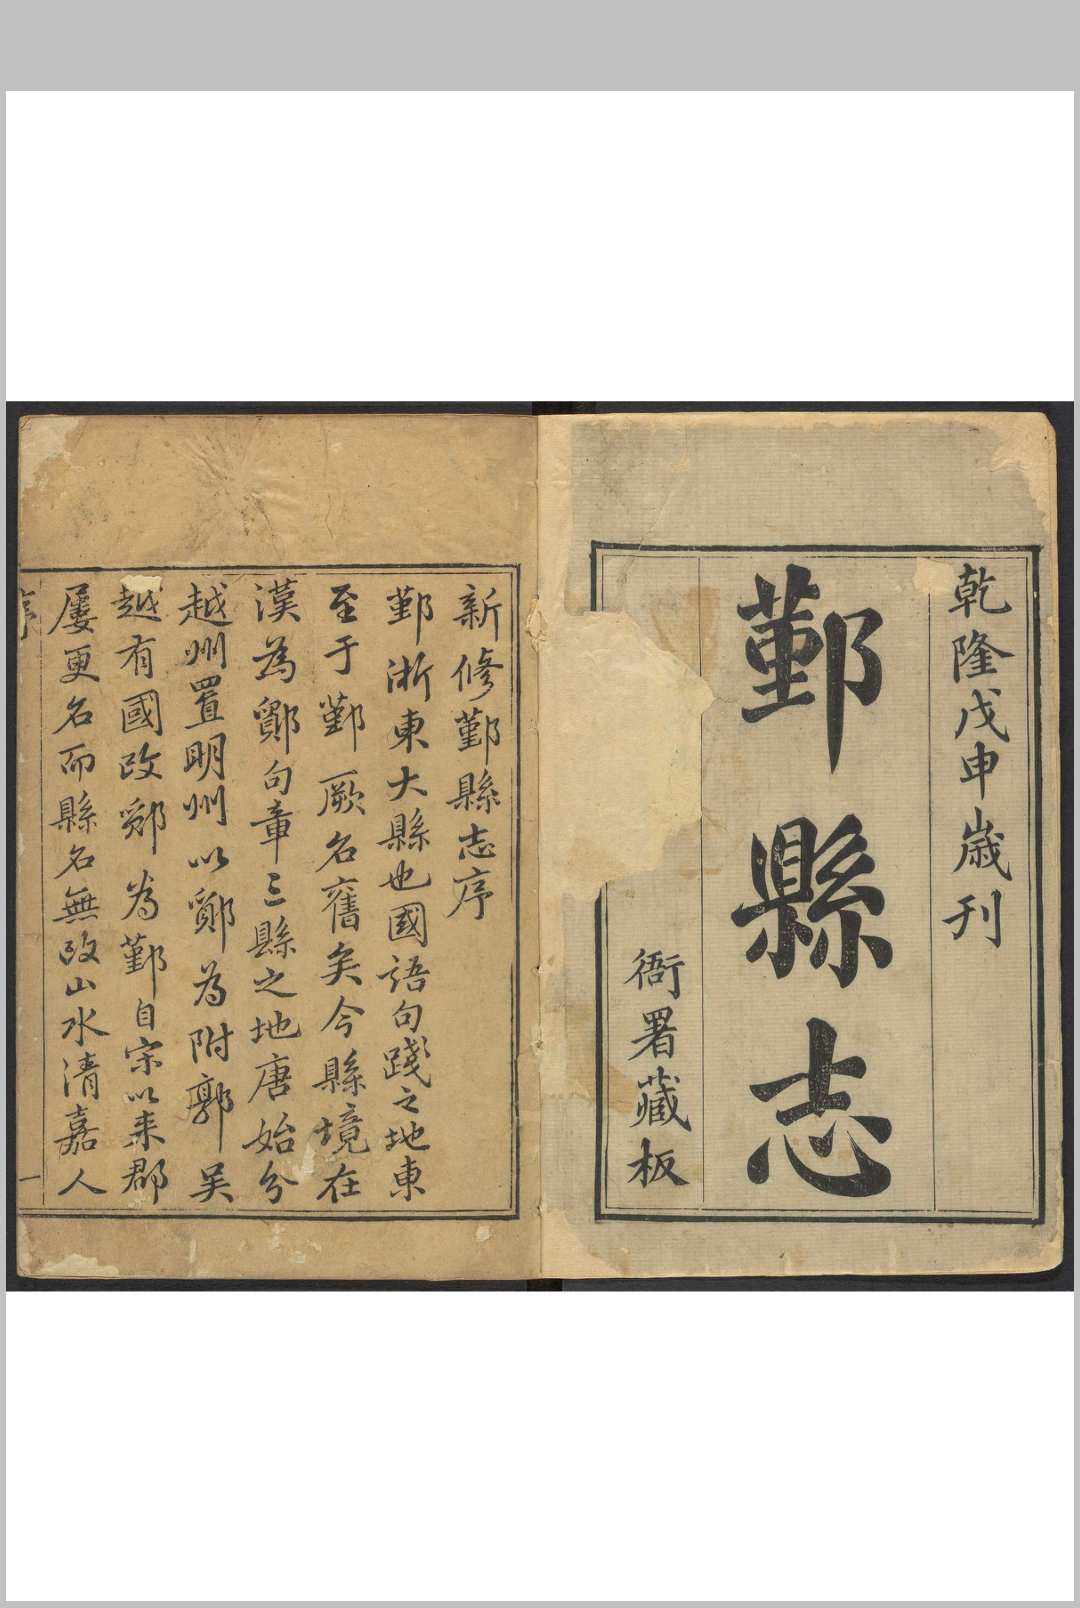 乾隆戊申歲刊
鄞縣志
衙署藏板
新修鄞縣志序
鄞浙東大縣也國語句踐之地東
至于鄞厥名舊矣今縣境在
漢為鄮句章二縣之地唐始分
越州置明州以鄮為附郭吳
越有國改鄮為鄞自宋以来郡
屢更名而縣名無改山水清嘉人
序
一